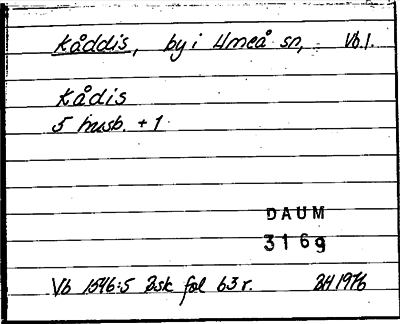 Kåddis, by i Umeå sn, Vb.l.
Kådis
5 husb. + 1
DAUM
3169
Vb 1546:5 2sk fol 63 r. 2/4 1976